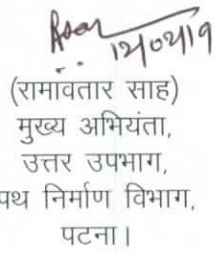 (रामावतार साह)
मुख्य अभियंता,
उत्तर उपभाग,
पथ निर्माण विभाग,
पटना।